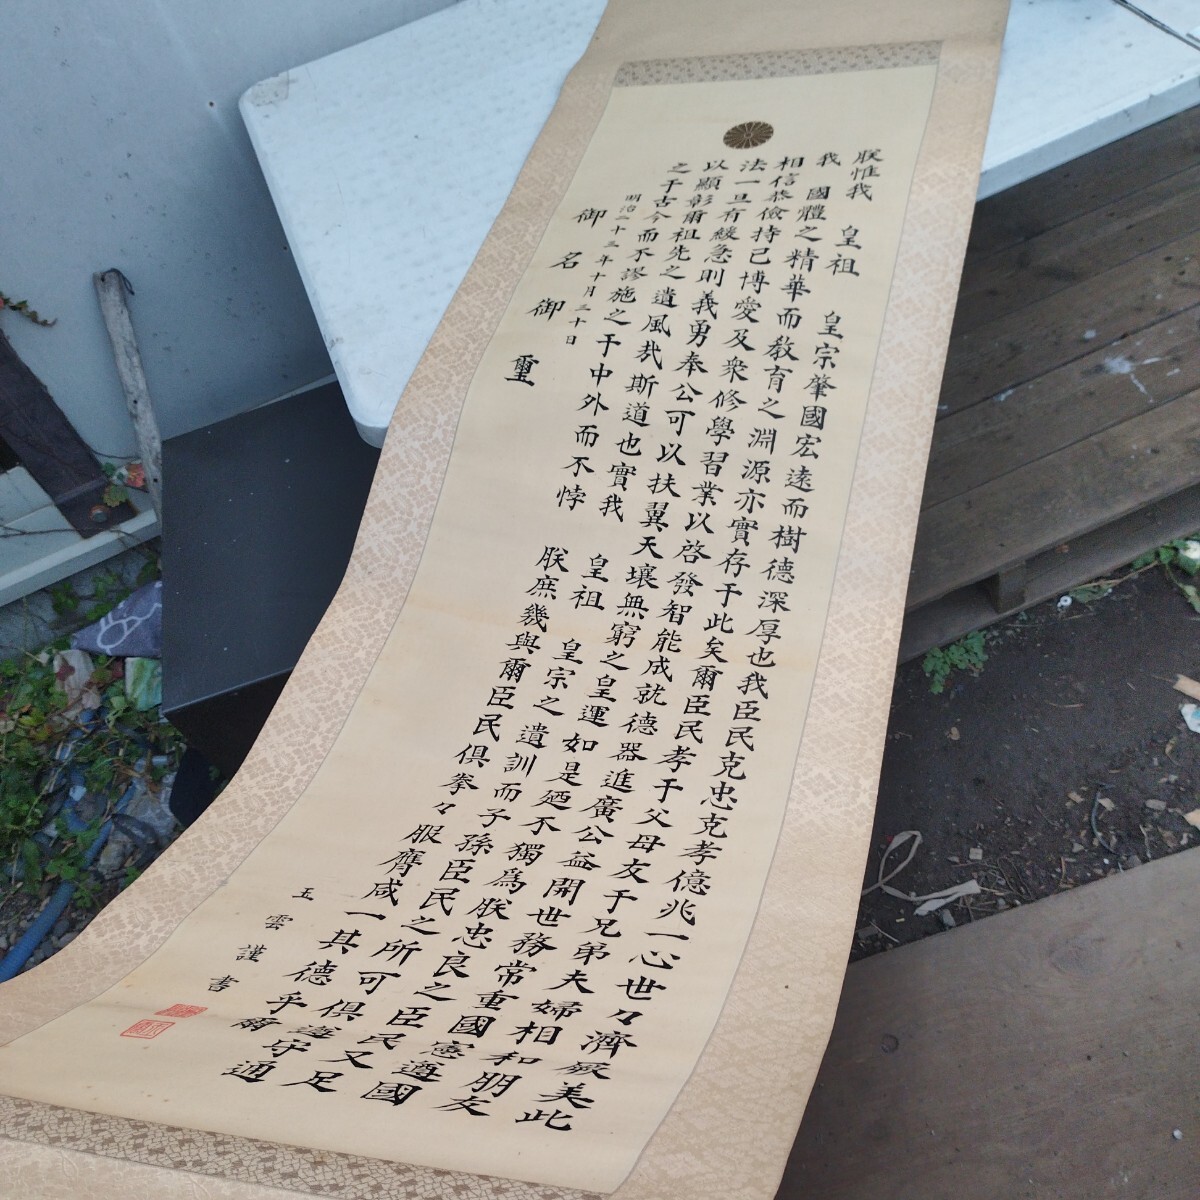 朕惟我 皇祖 皇宗肇國宏遠而樹德深厚也我臣民克忠克孝億兆一心世々濟厥美此
我 國體之精華而教育之淵源亦實存于此矣爾臣民孝于父母友于兄弟夫婦相和朋友
相信恭儉持己博愛及衆修學習業以啓發智能成就德器進廣公益開世務常重國憲遵國
法一旦有緩急則義勇奉公可以扶翼天壤無窮之皇運如是廼不獨為朕忠良之臣民又足
以顯彰爾祖先之遺風哉斯道也實我 皇祖 皇宗之遺訓而子孫臣民之所可俱遵守通
之于古今而不謬施之于中外而不悖 朕庶幾與爾臣民俱拳々服膺咸一其德乎爾
明治二十三年十月三十日
御名御璽
五雲謹書